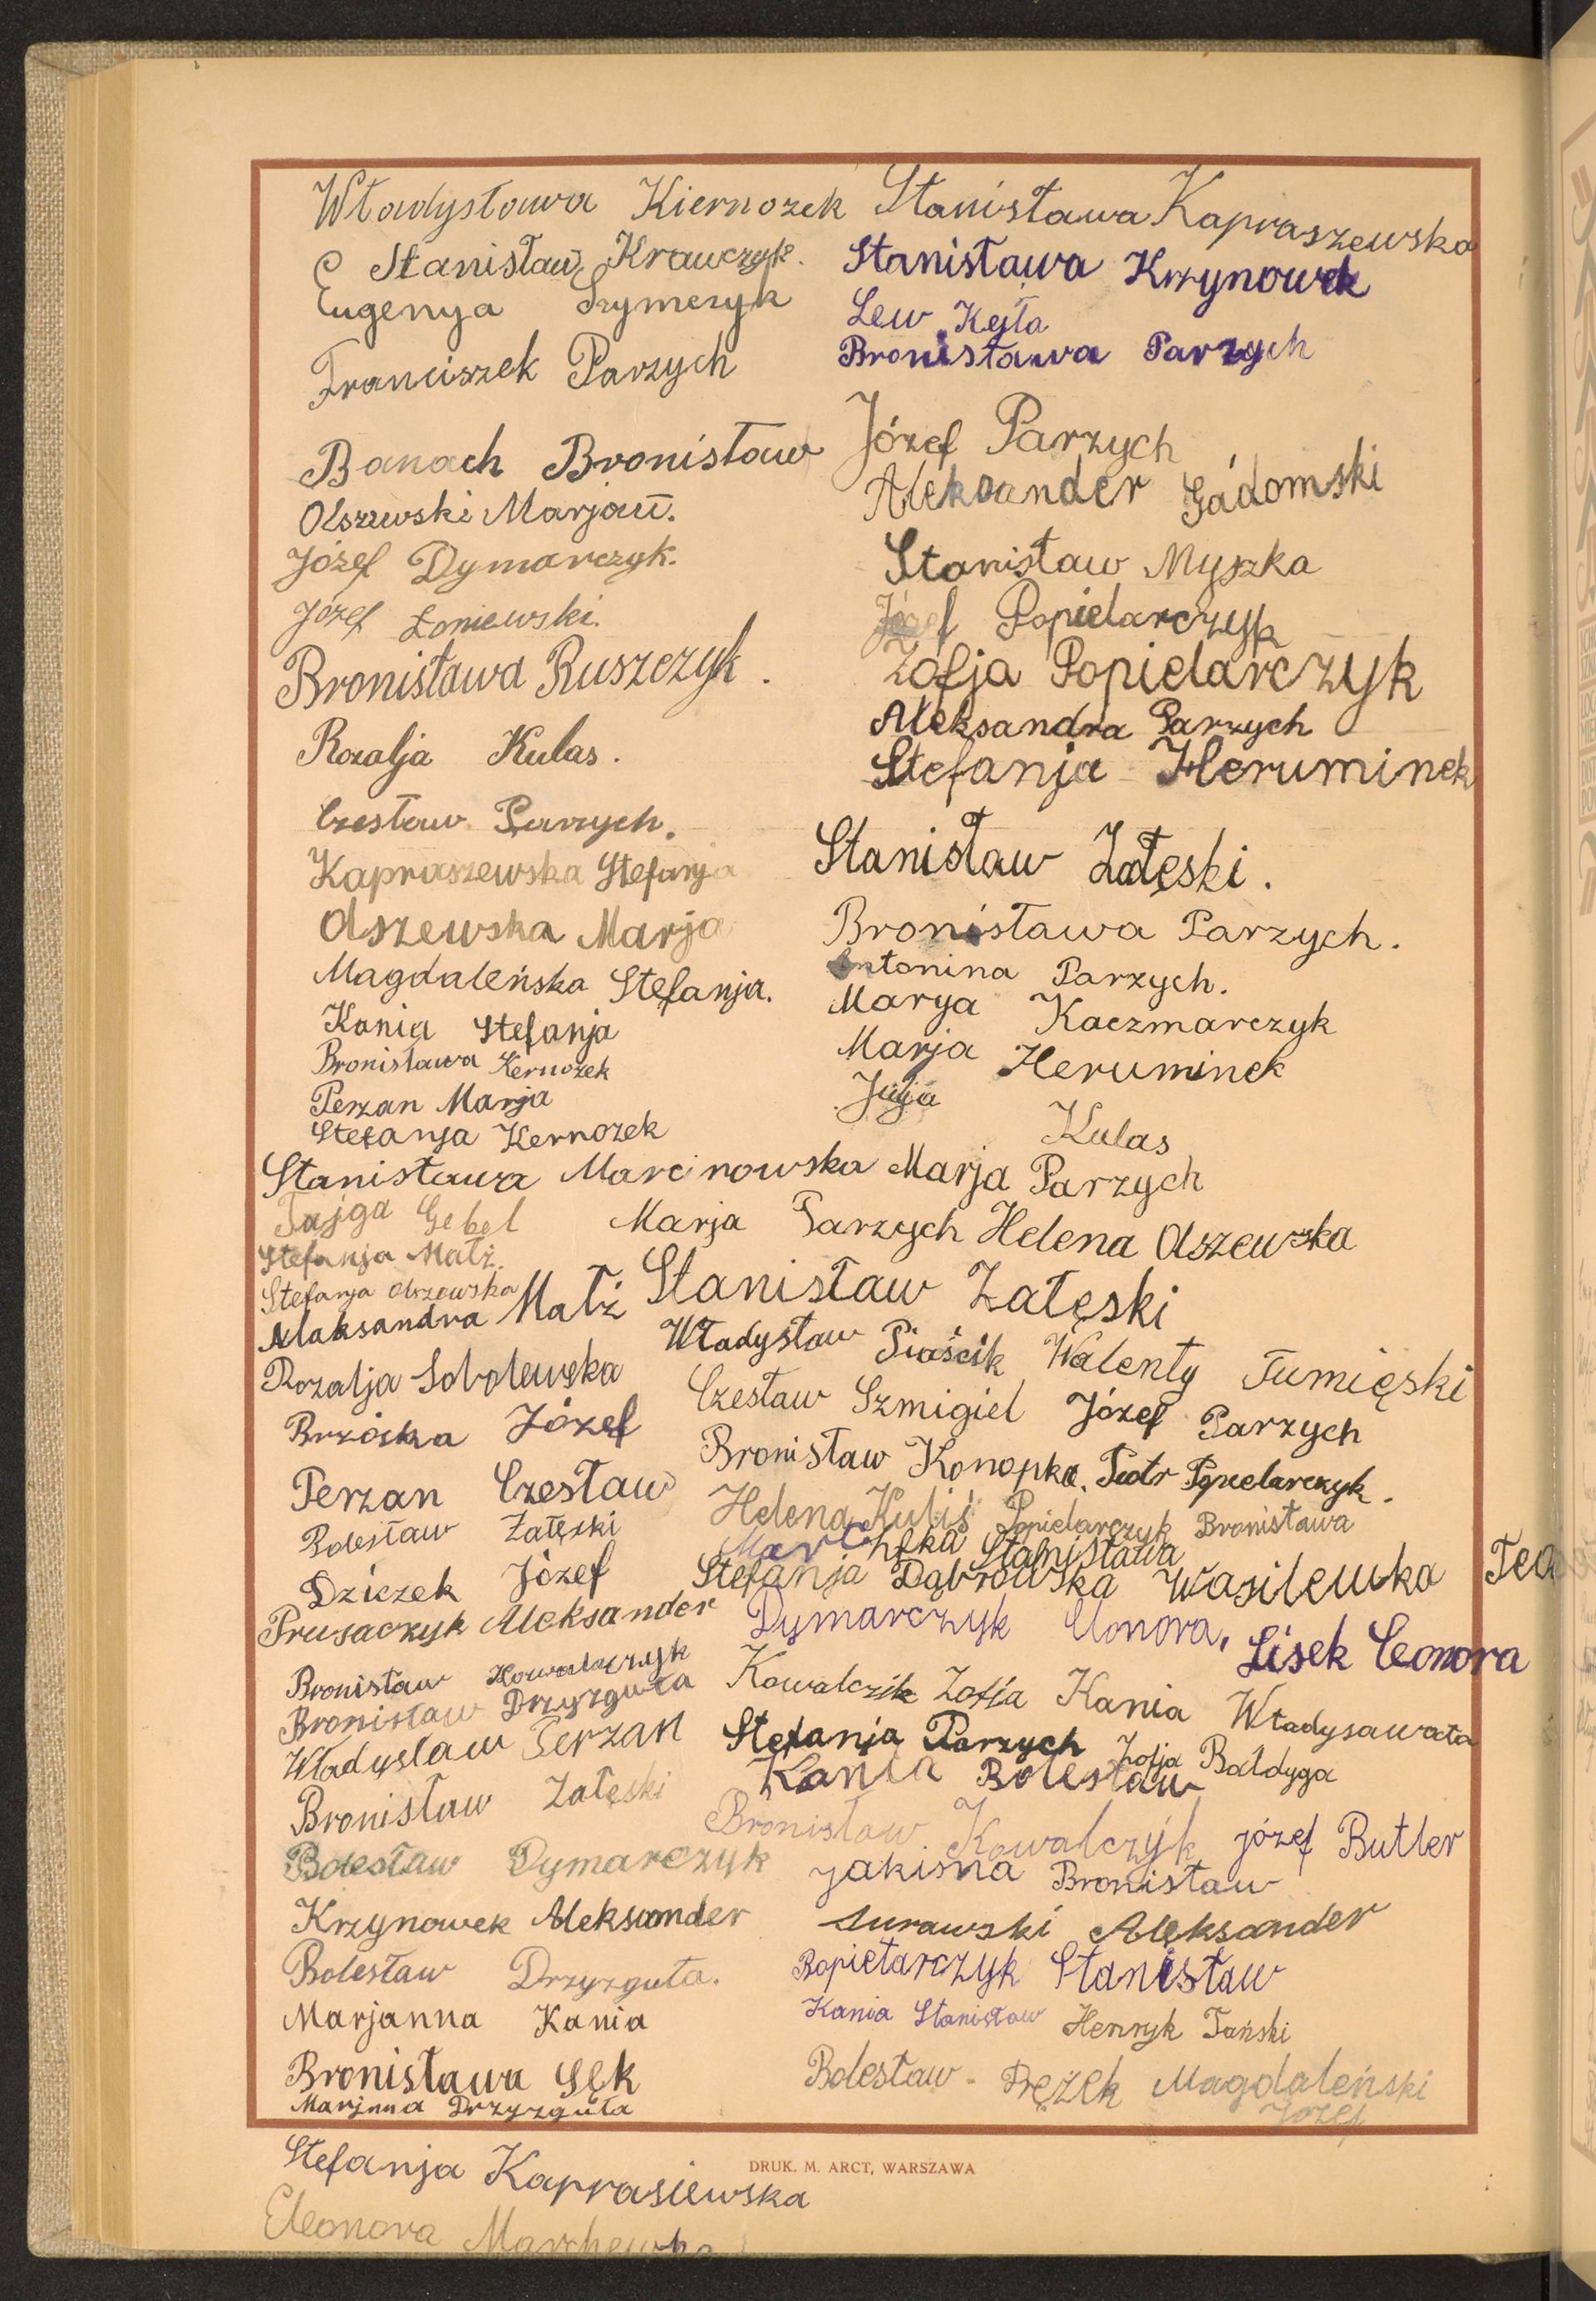 Władysława Kiernozek
C Stanisław Krawczyk.
Eugenya Szymczyk
Franciszek Parzych
Banach Bronisław
Olszewski Marjan.
Józef Dymarczyk.
Józef Łoniewski.
Bronisława Ruszczyk.
Rozalja Kulas.
Czesław Parzych.
Kapraszewska Stefanja
Olszewska Marja
Magdaleńska Stefanja.
Kania Stefanja
Bronisława Kernozek
Perzan Marja
Stefanja Kernozek
Stanisława Marcinowska
Fajga Gebel
Stefanja Małż.
Stefanja Olszewska
Alaksandra Małż
Rozalja Sobolewska
Brzóska Józef
Perzan Czesław
Bolesław Załęski
Dziczek Józef
Prusaczyk Aleksander
Bronisław
Bronisław Drzyzguła
Władysław Perzan
Bronisław Załęski
Bolesław Dymarczyk
Krzynowek Aleksander
Bolesław Drzyzguła.
Marjanna Kania
Bronisława Sęk
Marjnna Drzyzguła
Stanisława Kapraszewska
Stanisława Krzynowek
Lew Kejła
Bronisława Parzych
Józef Parzych
Aleksander Gadomski
Stanisław Myszka
Józef Popielarczyk
Zofja Popielarczyk
Aleksandra Parzych
Stefanja Heruminek
Stanisław Załęski.
Bronisława Parzych.
Antonina Parzych.
Marya Kaczmarczyk
Marja Heruminek
Julja Kulas
Marja Parzych
Marja Parzych Helena Olszewska
Stanisław Załęski
Władysław Piaścik Walenty Tumięski
Czesław Szmigiel Józef Parzych
Bronisław Konopka. Piotr Popielarczyk.
Helena Kuliś Popielarczyk Bronisława
Stanisława
Stefanja Dąbrowska Wasilewka
Dymarczyk Elonora, Lisek Leonora
Kowalczik Zofia Kania
Stefanja Parzych Zofja Bałdyga
Kania Bolesław
Bronisław Kowalczyk Józef Butler
Jakisna Bronisław
Surawski Aleksander
Popielarczyk Stanisław
Kania Stanisław Henryk Tański
Bolesław Pręzek Magdaleński
Józef
DRUK. M. ARCT, WARSZAWA
Stefanja Kaprasiewska
Eleonora Marchewka